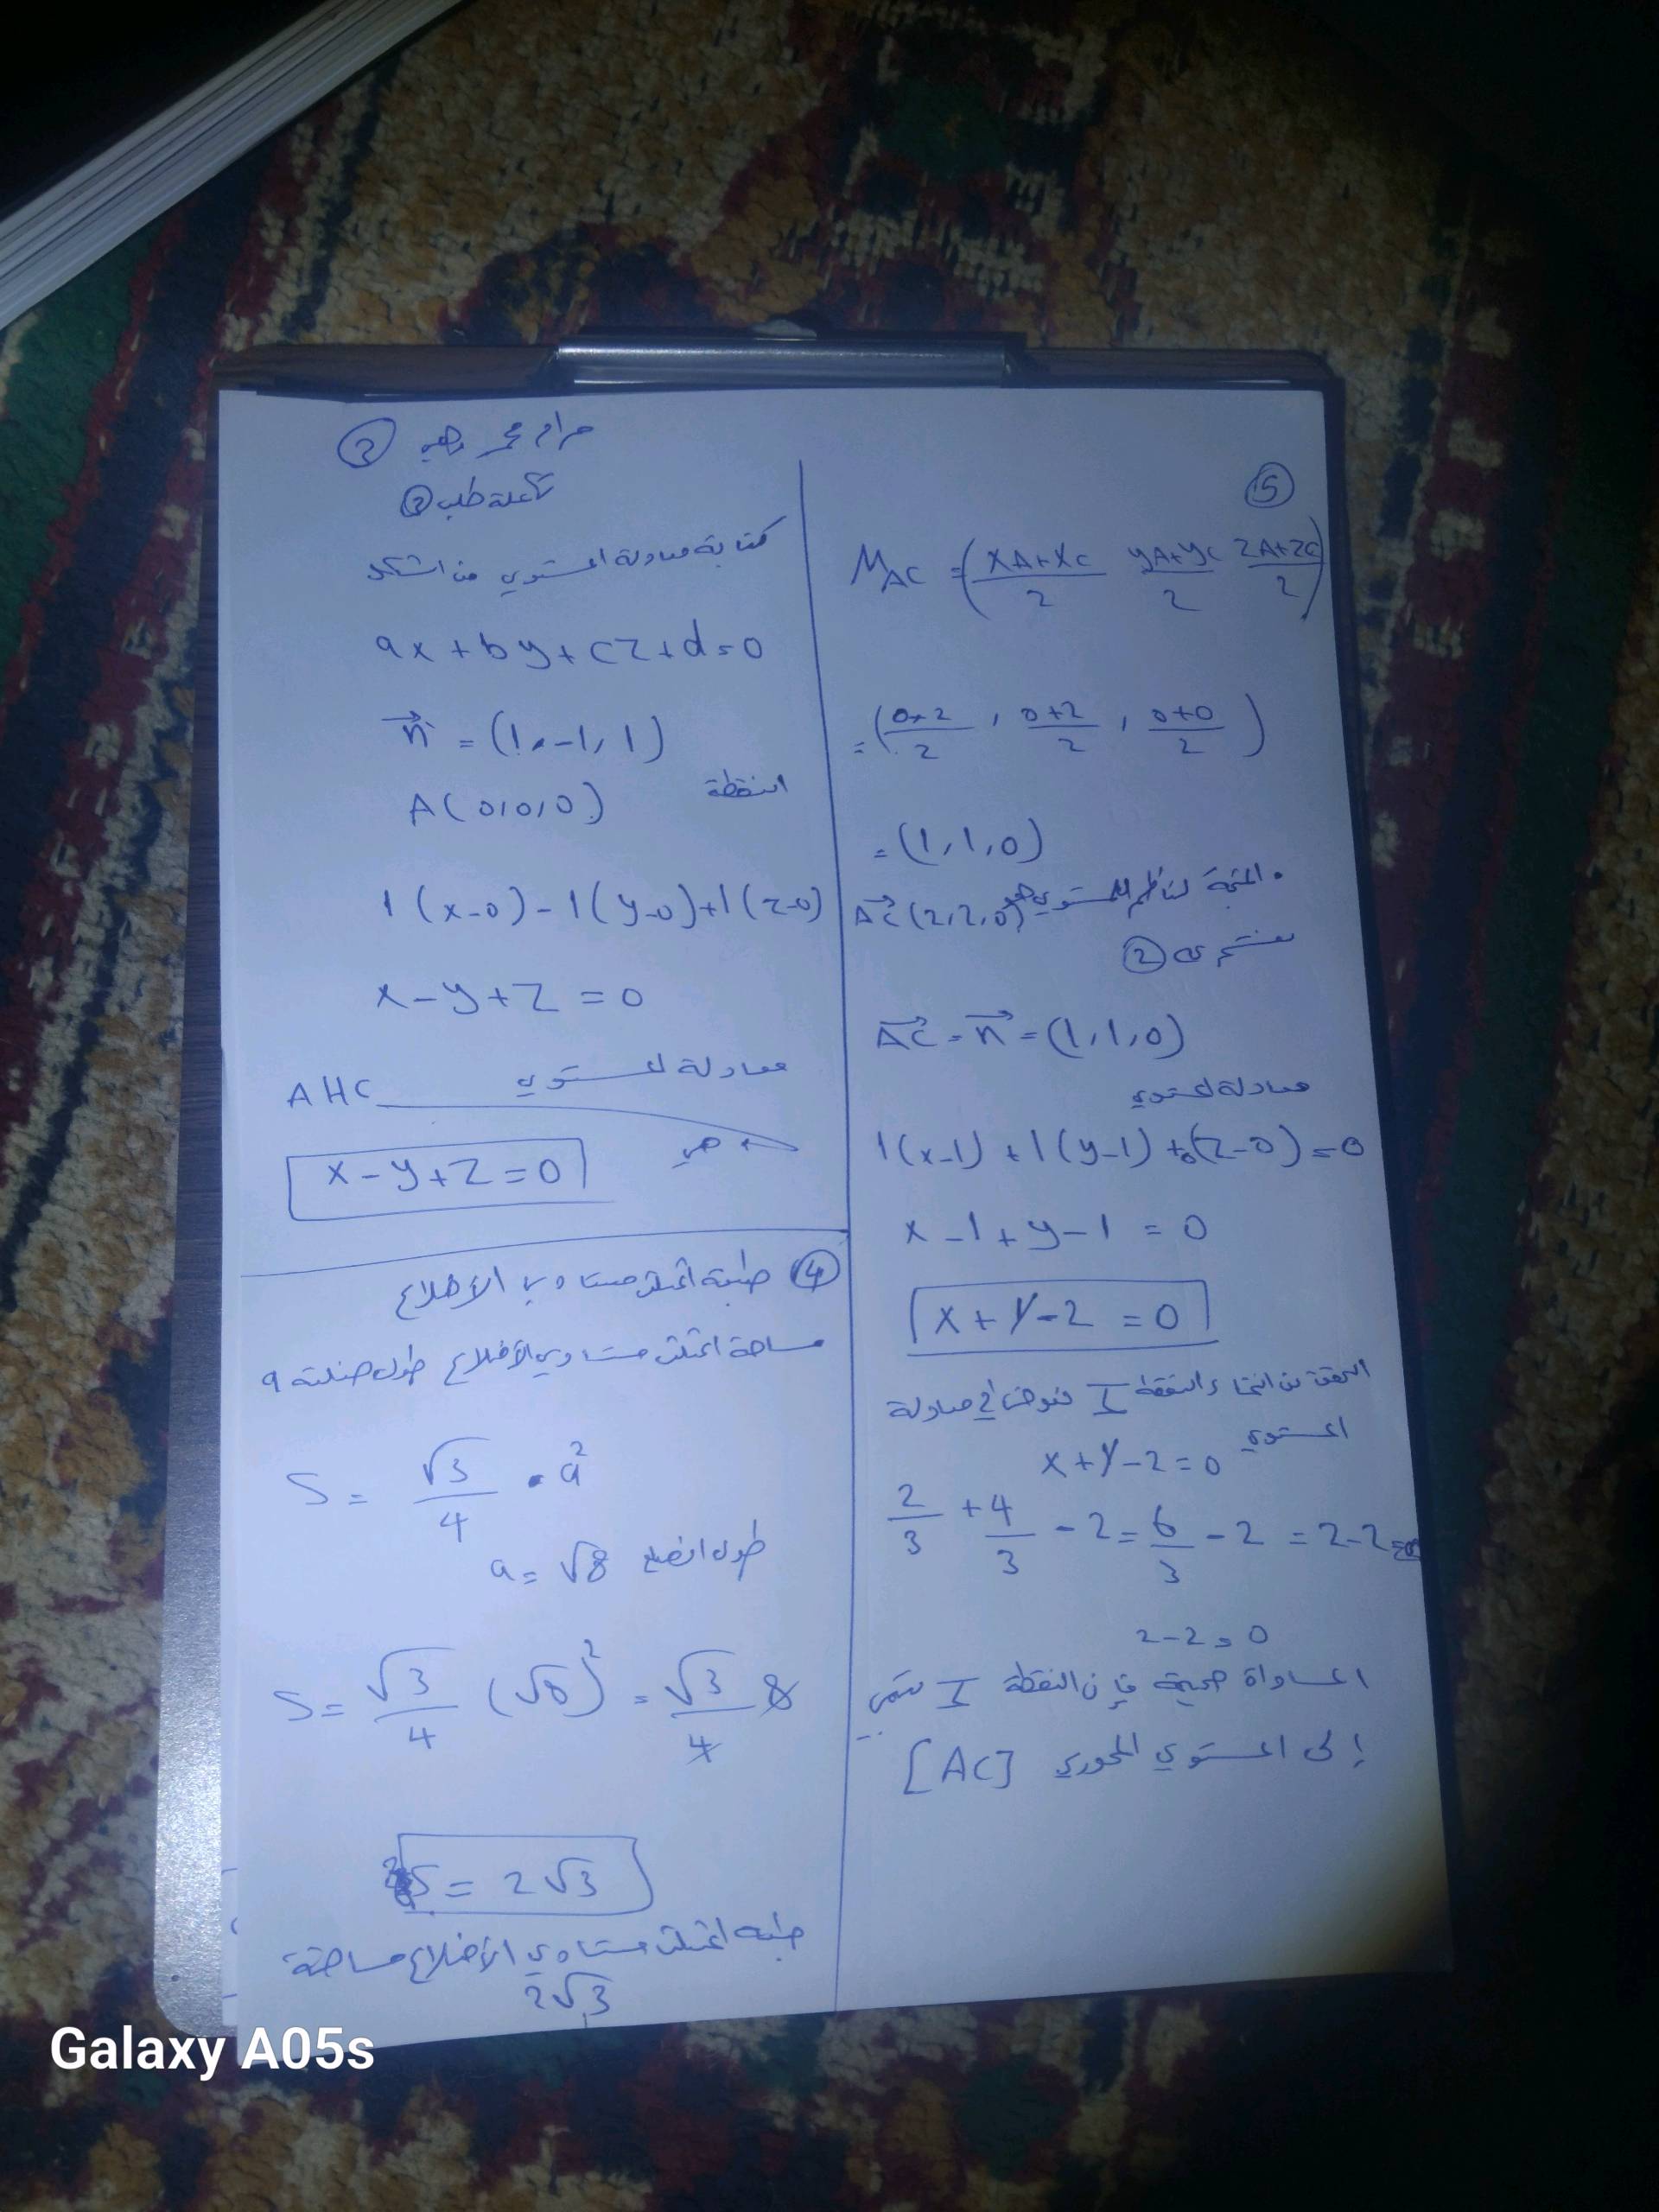 مرام محمد وهبه ②
تكملة طلب ③
كتابة معادلة المستوي من الشكل
ax + by + cz + d = 0
n⃗ = (1, -1, 1)
A(0,0,0) النقطة
1(x-0) - 1(y-0) + 1(z-0)
x - y + z = 0
معادلة المستوي AHC
هي
x - y + z = 0
④ طبيعة المثلث متساوي الأضلاع
مساحة المثلث متساوي الأضلاع طول ضلعه a
S = √3/4 · a²
طول الضلع a = √8
S = √3/4 (√8)² = √3/4 8
S = 2√3
طبيعة المثلث متساوي الأضلاع مساحته
2√3
⑤
M_AC = (xA+xC/2 yA+yC/2 zA+zC/2)
= (0+2/2, 0+2/2, 0+0/2)
= (1,1,0)
• المتجه الناظم للمستوي هو AC⃗(2,2,0)
②
AC⃗ = n⃗ = (1,1,0)
معادلة المستوي
1(x-1) + 1(y-1) + 0(z-0) = 0
x - 1 + y - 1 = 0
x + y - 2 = 0
التحقق من انتماء النقطة I نعوض في معادلة
المستوي
x + y - 2 = 0
2/3 + 4/3 - 2 = 6/3 - 2 = 2-2 = 0
2-2 = 0
المساواة صحيحة فإن النقطة I تنتمي
إلى المستوي المحوري [AC]
Galaxy A05s